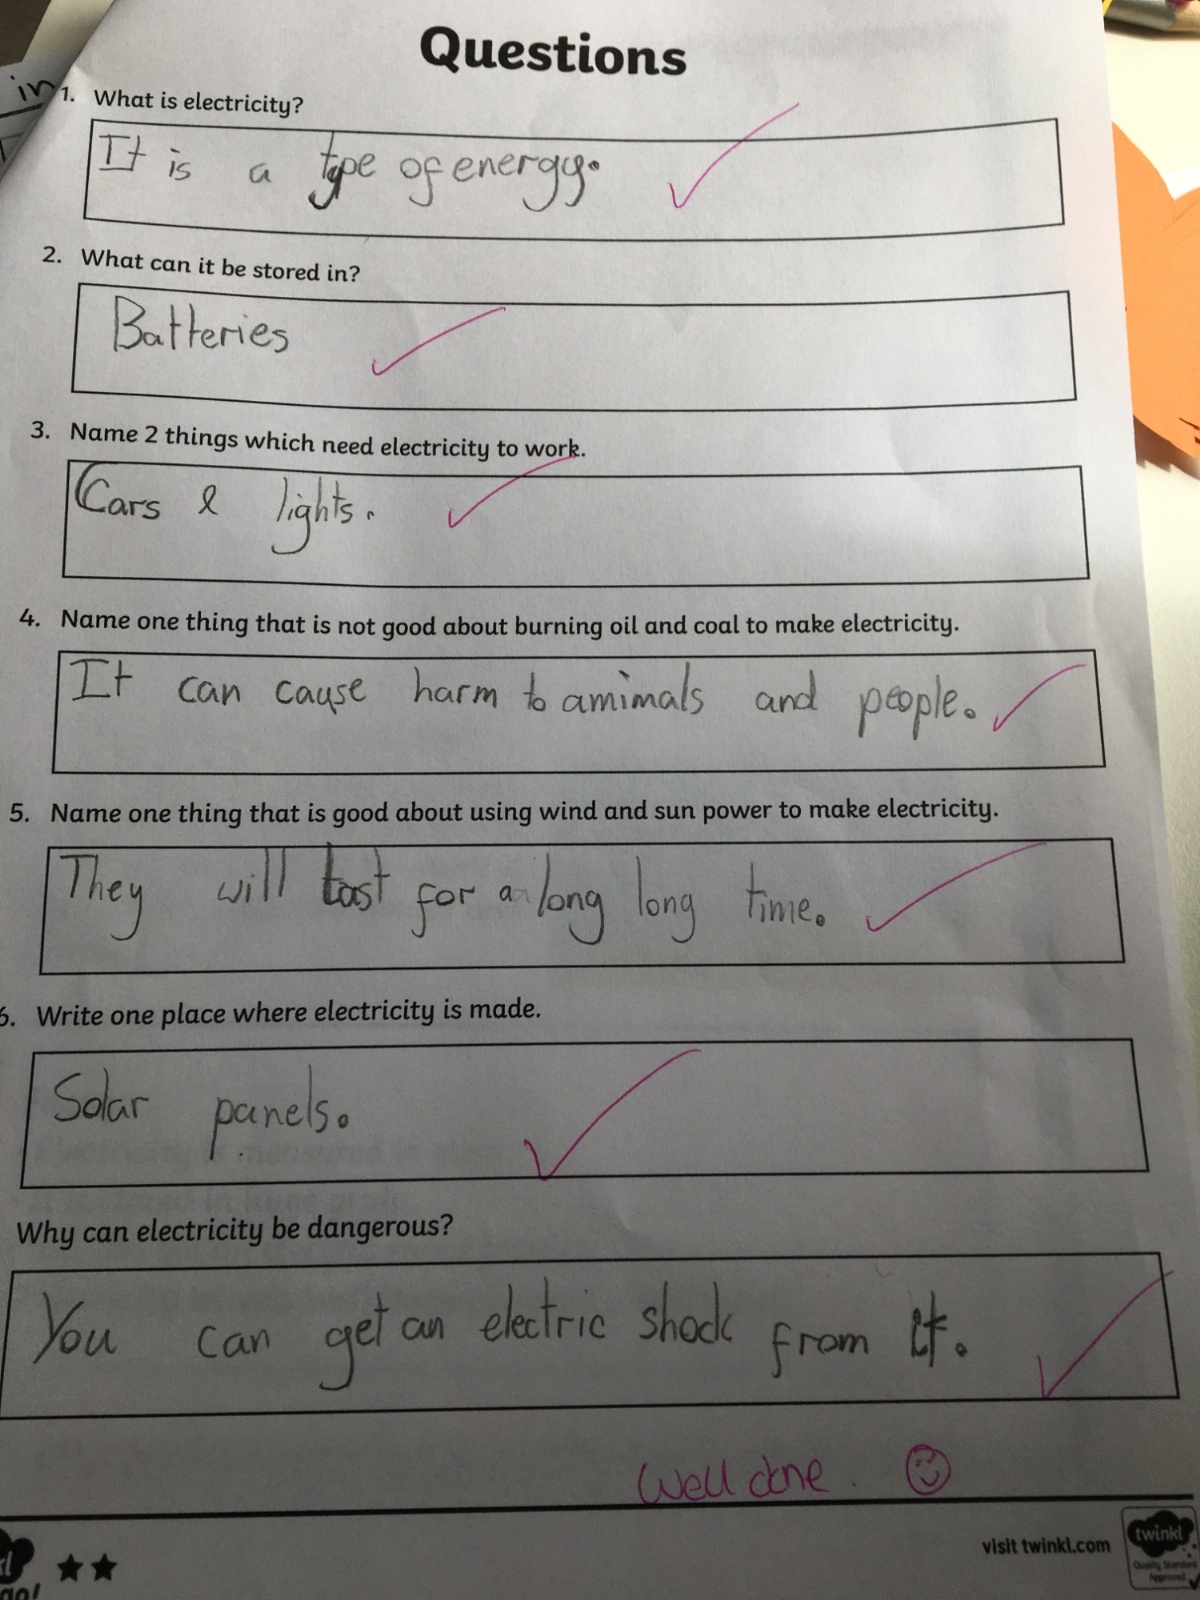 in
Questions
1. What is electricity?
It is a type of energy.
2. What can it be stored in?
Batteries
3. Name 2 things which need electricity to work.
Cars & lights.
4. Name one thing that is not good about burning oil and coal to make electricity.
It can cause harm to amimals and people.
5. Name one thing that is good about using wind and sun power to make electricity.
They will last for a long long time.
6. Write one place where electricity is made.
Solar panels.
Why can electricity be dangerous?
You can get an electric shock from it.
Well done.
visit twinkl.com
twinkl
Quality Standard
Approved
go!